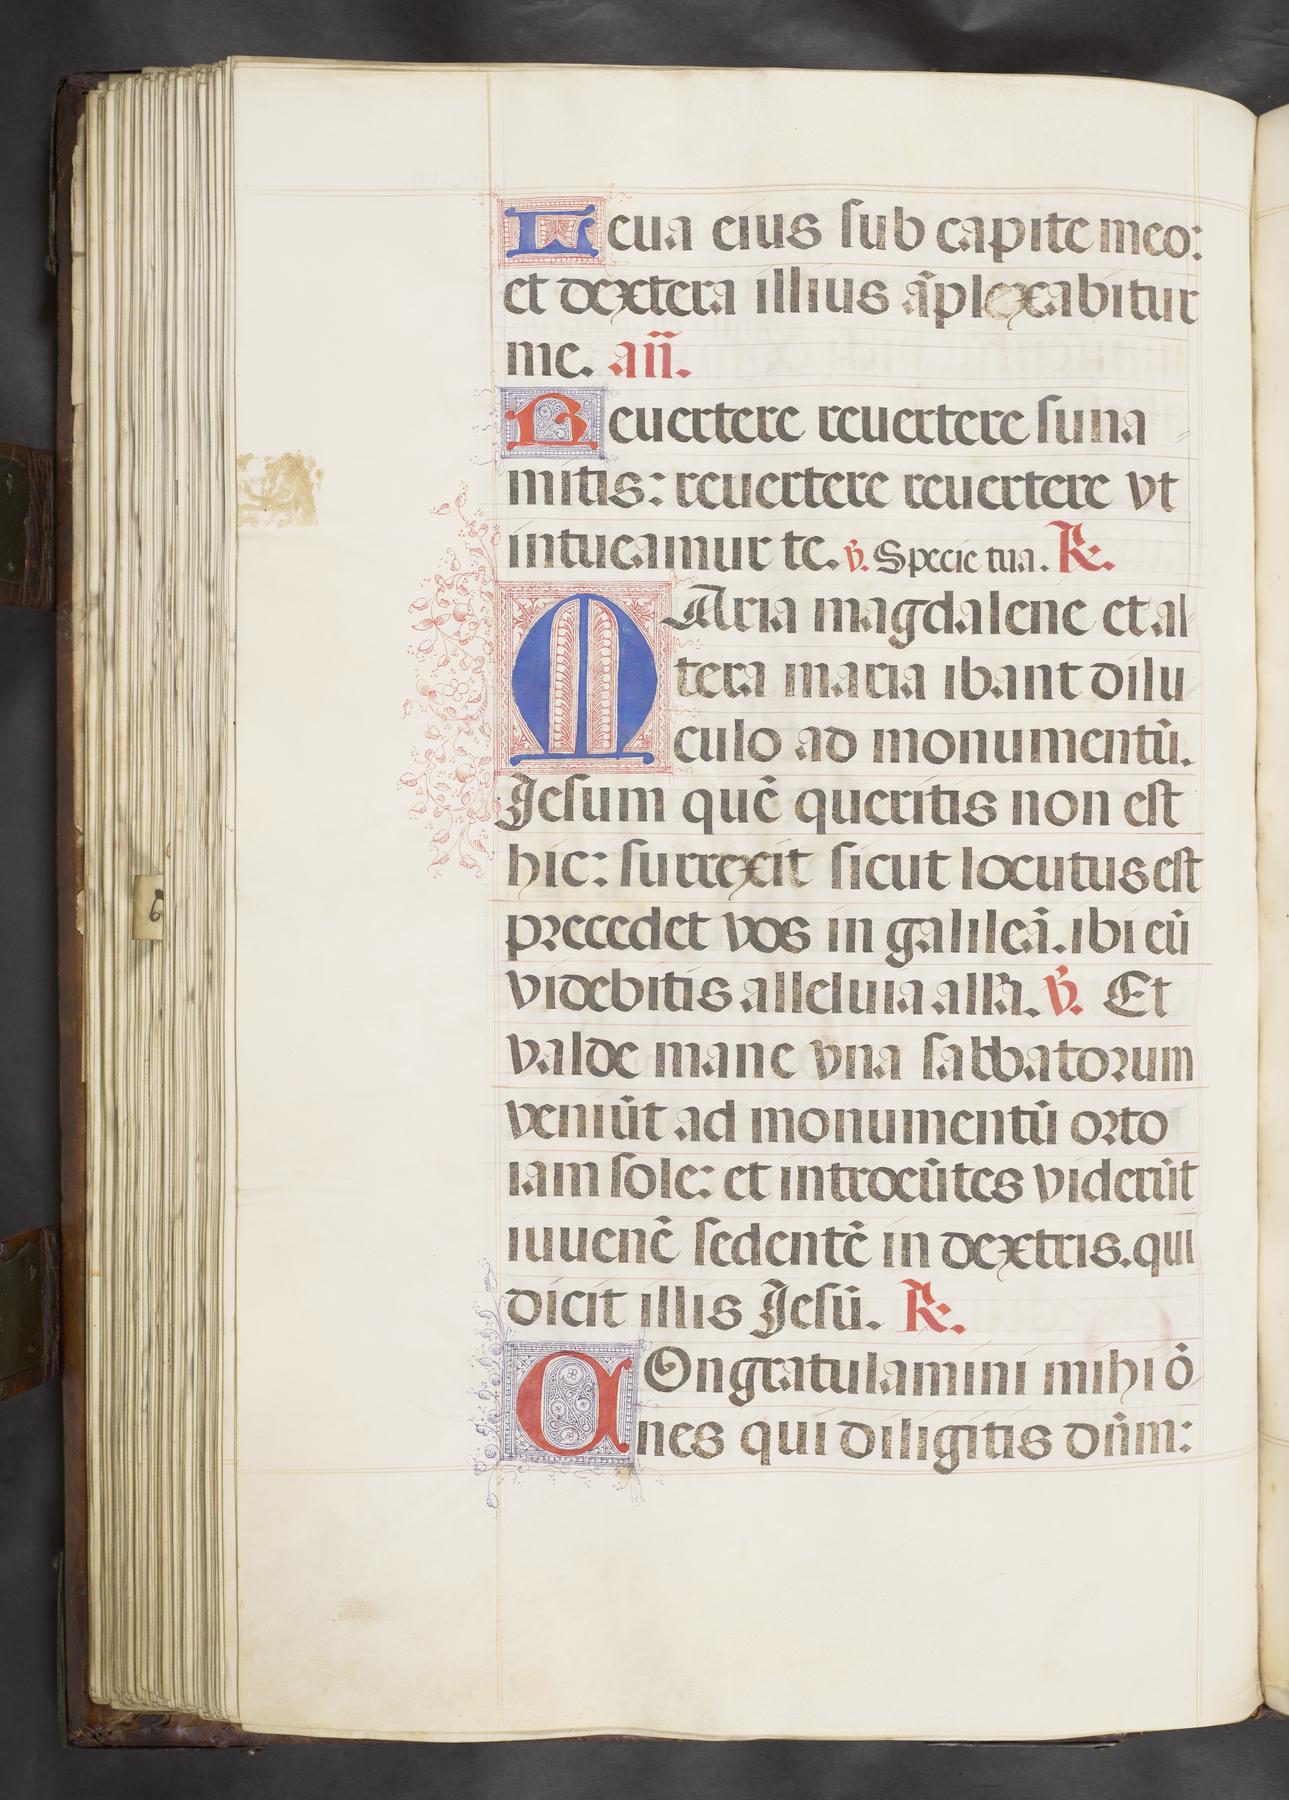 Leua eius sub capite meo:
et dextera illius ãplexabitur
me. añ.
Reuertere reuertere suna
mitis: reuertere reuertere vt
intueamur te. ℣. Specie tua. ℟.
MAria magdalene et al
tera maria ibant dilu
culo ad monumentũ.
Jesum quẽ queritis non est
hic: surrexit sicut locutus est
precedet vos in galileã. ibi eũ
videbitis alleluia alla. ℣. Et
valde mane vna sabbatorum
veniũt ad monumentũ orto
iam sole: et introeũtes viderũt
iuuenẽ sedentẽ in dextris. qui
dicit illis Jesũ. ℟.
COngratulamini mihi õ
nes qui diligitis dñm:
6